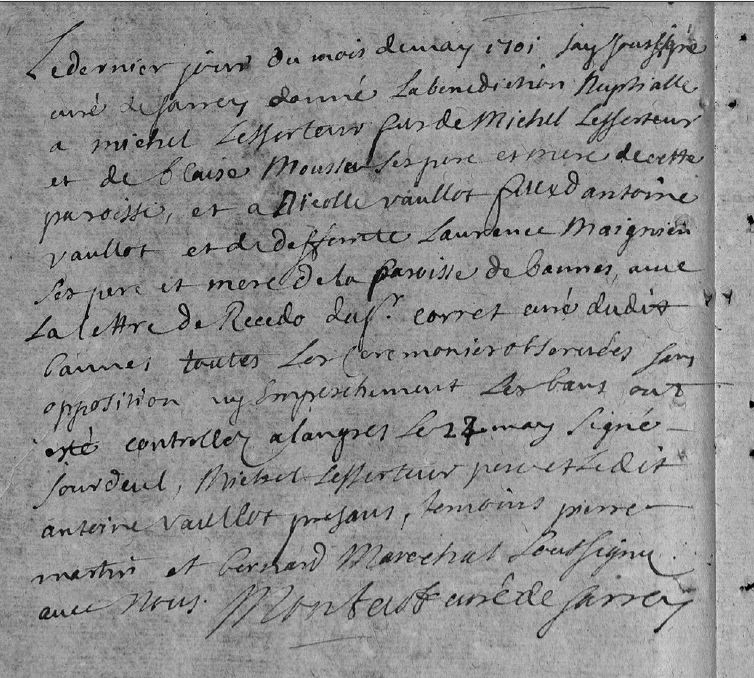 Le dernier jour du mois de may 1701 jay soussigné
curé de sarrey donné La benediction Nuptialle
a michel Lesserteur fils de Michel Lesserteur
et de blaise Mousseu ses pere et mere de cette
paroisse, et a Nicolle vaullot fille d antoine
vaullot et de deffuncte Laurence Maignien
ses pere et mere de la paroisse de bannes, avec
La lettre de Recedo du sr. corret curé dudit
bannes toutes Les Ceremonies observées sans
opposition ny Empeschement Les bans ont
esté controllez a langres le 27 may signé
Jourdeuil, Michel Lesserteur pere et Ledit
antoine vaullot presans, temoins pierre
martin et bernard Marechal Soussignez
avec Nous. curé de sarrey